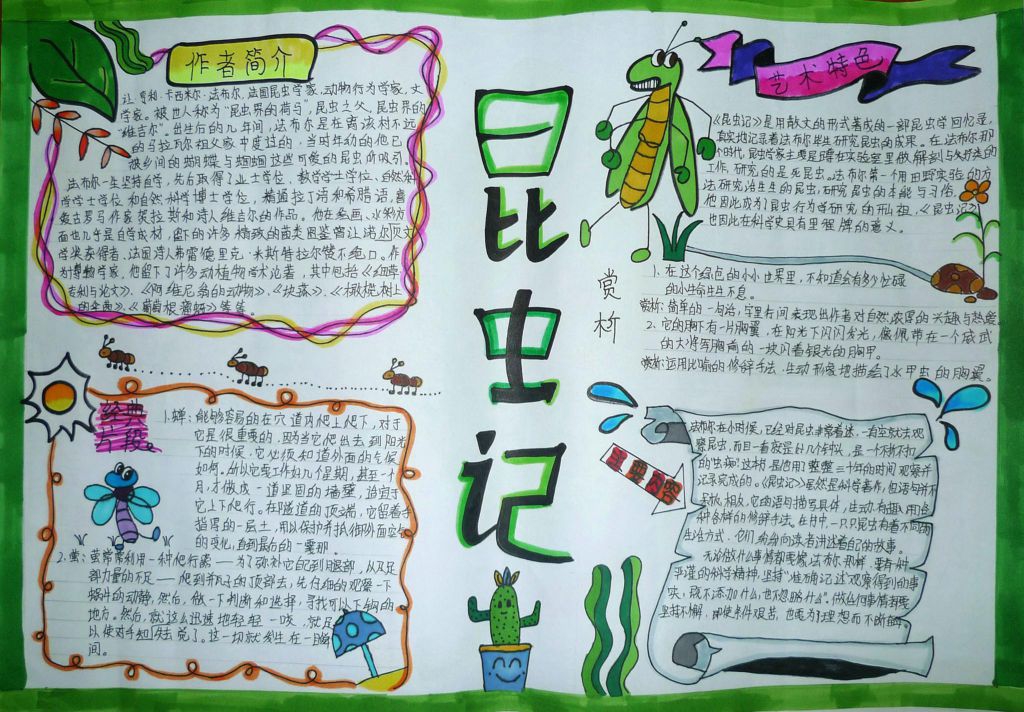 作者简介
让·亨利·卡西米尔·法布尔,法国昆虫学家,动物行为学家,文
学家。被世人称为“昆虫界的荷马”,昆虫之父,昆虫界的
“维吉尔”。出生后的几年间,法布尔是在离该村不远
的马拉瓦尔祖父家中度过的,当时年幼的他已
被乡间的蝴蝶与蝈蝈这些可爱的昆虫所吸引。
法布尔一生坚持自学,先后取得了业士学位,数学学士学位,自然科
学学士学位和自然科学博士学位,精通拉丁语和希腊语,喜
爱古罗马作家贺拉斯和诗人维吉尔的作品。他在绘画、水彩方
面也几乎是自学成材,留下的许多精致的菌类图鉴曾让诺贝尔文
学奖获得者、法国诗人弗雷德里克·米斯特拉尔赞不绝口。作
为博物学家,他留下了许多动植物学术论著,其中包括《茜草:
专利与论文》、《阿维尼翁的动物》、《块菰》、《橄榄树上
的伞菌》、《葡萄根瘤蚜》等等。
经典
片段
1.蝉:能够容易的在穴道内爬上爬下,对于
它是很重要的,因为当它爬出去到阳光
下的时候,它必须知道外面的气候
如何。所以它要工作好几个星期,甚至一个
月,才做成一道坚固的墙壁,适宜于
它上下爬行。在隧道的顶端,它留着手
指厚的一层土,用以保护并抵御外面空气
的变化,直到最后的一霎那。
2.萤:萤常常利用一种爬行器——为了弥补它自己腿部,以及足
部力量的不足——爬到瓶子的顶部去,先仔细的观察一下
蜗牛的动静,然后,做一下判断和选择,寻找可以下钩的
地方。然后,就这么迅速地轻轻一咬,就足
以使对手失去知觉了。这一切就发生在一瞬
间。
昆虫记
艺术特色
《昆虫记》是用散文的形式著成的一部昆虫学回忆录,
真实地记录着法布尔毕生研究昆虫的成果。在法布尔那
个时代,昆虫学家主要是蹲在实验室里做解剖与分类的
工作,研究的是死昆虫。法布尔第一个用田野实验的方
法研究活生生的昆虫,研究昆虫的本能与习俗。
他因此成为了昆虫行为学研究的开山祖,《昆虫记》
也因此在科学史具有里程碑的意义。
赏析
1、在这个绿色的小小世界里,不知道会有多少忙碌
的小生命生生不息。
赏析:简单的一句话,字里行间表现出作者对自然浓厚的兴趣与热爱。
2、它的胸下有一片胸翼,在阳光下闪闪发光,像佩带在一个威武
的大将军胸前的一块闪着银光的胸甲。
赏析:运用比喻的修辞手法,生动形象地描绘了水甲虫的胸翼。
主要内容
法布尔在小时候,已经对昆虫非常着迷,一有空就去观
察昆虫,而且一看就是好几个钟头,是一个不折不扣
的虫痴!这本书是他用了整整三十年的时间观察并
记录完成的。《昆虫记》虽然是科学著作,但语句并不
呆板,相反,它的语句描写具体,生动有趣,用各
种各样的修辞手法。在书中,一只只昆虫有着不同的
生活方式,它们纷纷向读者讲述着自己的故事。
无论做什么事情都要像法布尔那样,要有一种
严谨的科学精神,坚持“准确记述观察得到的事
实,既不添加什么,也不忽略什么”。做任何事情都要
坚持不懈,即使条件艰苦,也要为了理想而不断奋斗。